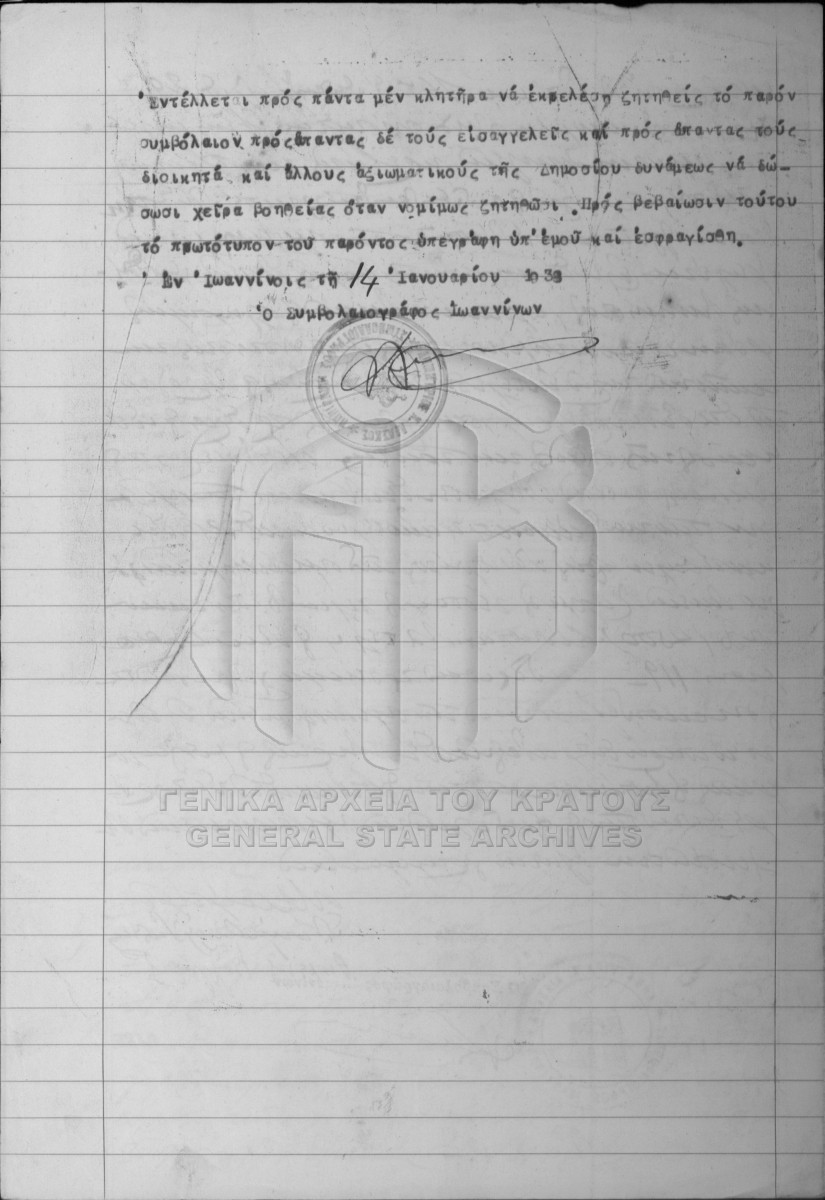 Ἐντέλλεται πρός πάντα μέν κλητῆρα νά ἐκτελέσῃ ζητηθείς τό παρόν
συμβόλαιον πρός ἅπαντας δέ τούς εἰσαγγελεῖς καί πρός ἅπαντας τούς
διοικητά καί ἄλλους ἀξιωματικούς τῆς Δημοσίου δυνάμεως νά δώ-
σωσι χεῖρα βοηθείας ὅταν νομίμως ζητηθῶσι . Πρός βεβαίωσιν τούτου
τό πρωτότυπον τοῦ παρόντος ὑπεγράφη ὑπ' ἐμοῦ καί ἐσφραγίσθη.
Ἐν Ἰωαννίνοις τῇ 14 Ἰανουαρίου
Ὁ Συμβολαιογράφος Ἰωαννίνων
ΓΕΝΙΚΑ ΑΡΧΕΙΑ ΤΟΥ ΚΡΑΤΟΥΣ
GENERAL STATE ARCHIVES